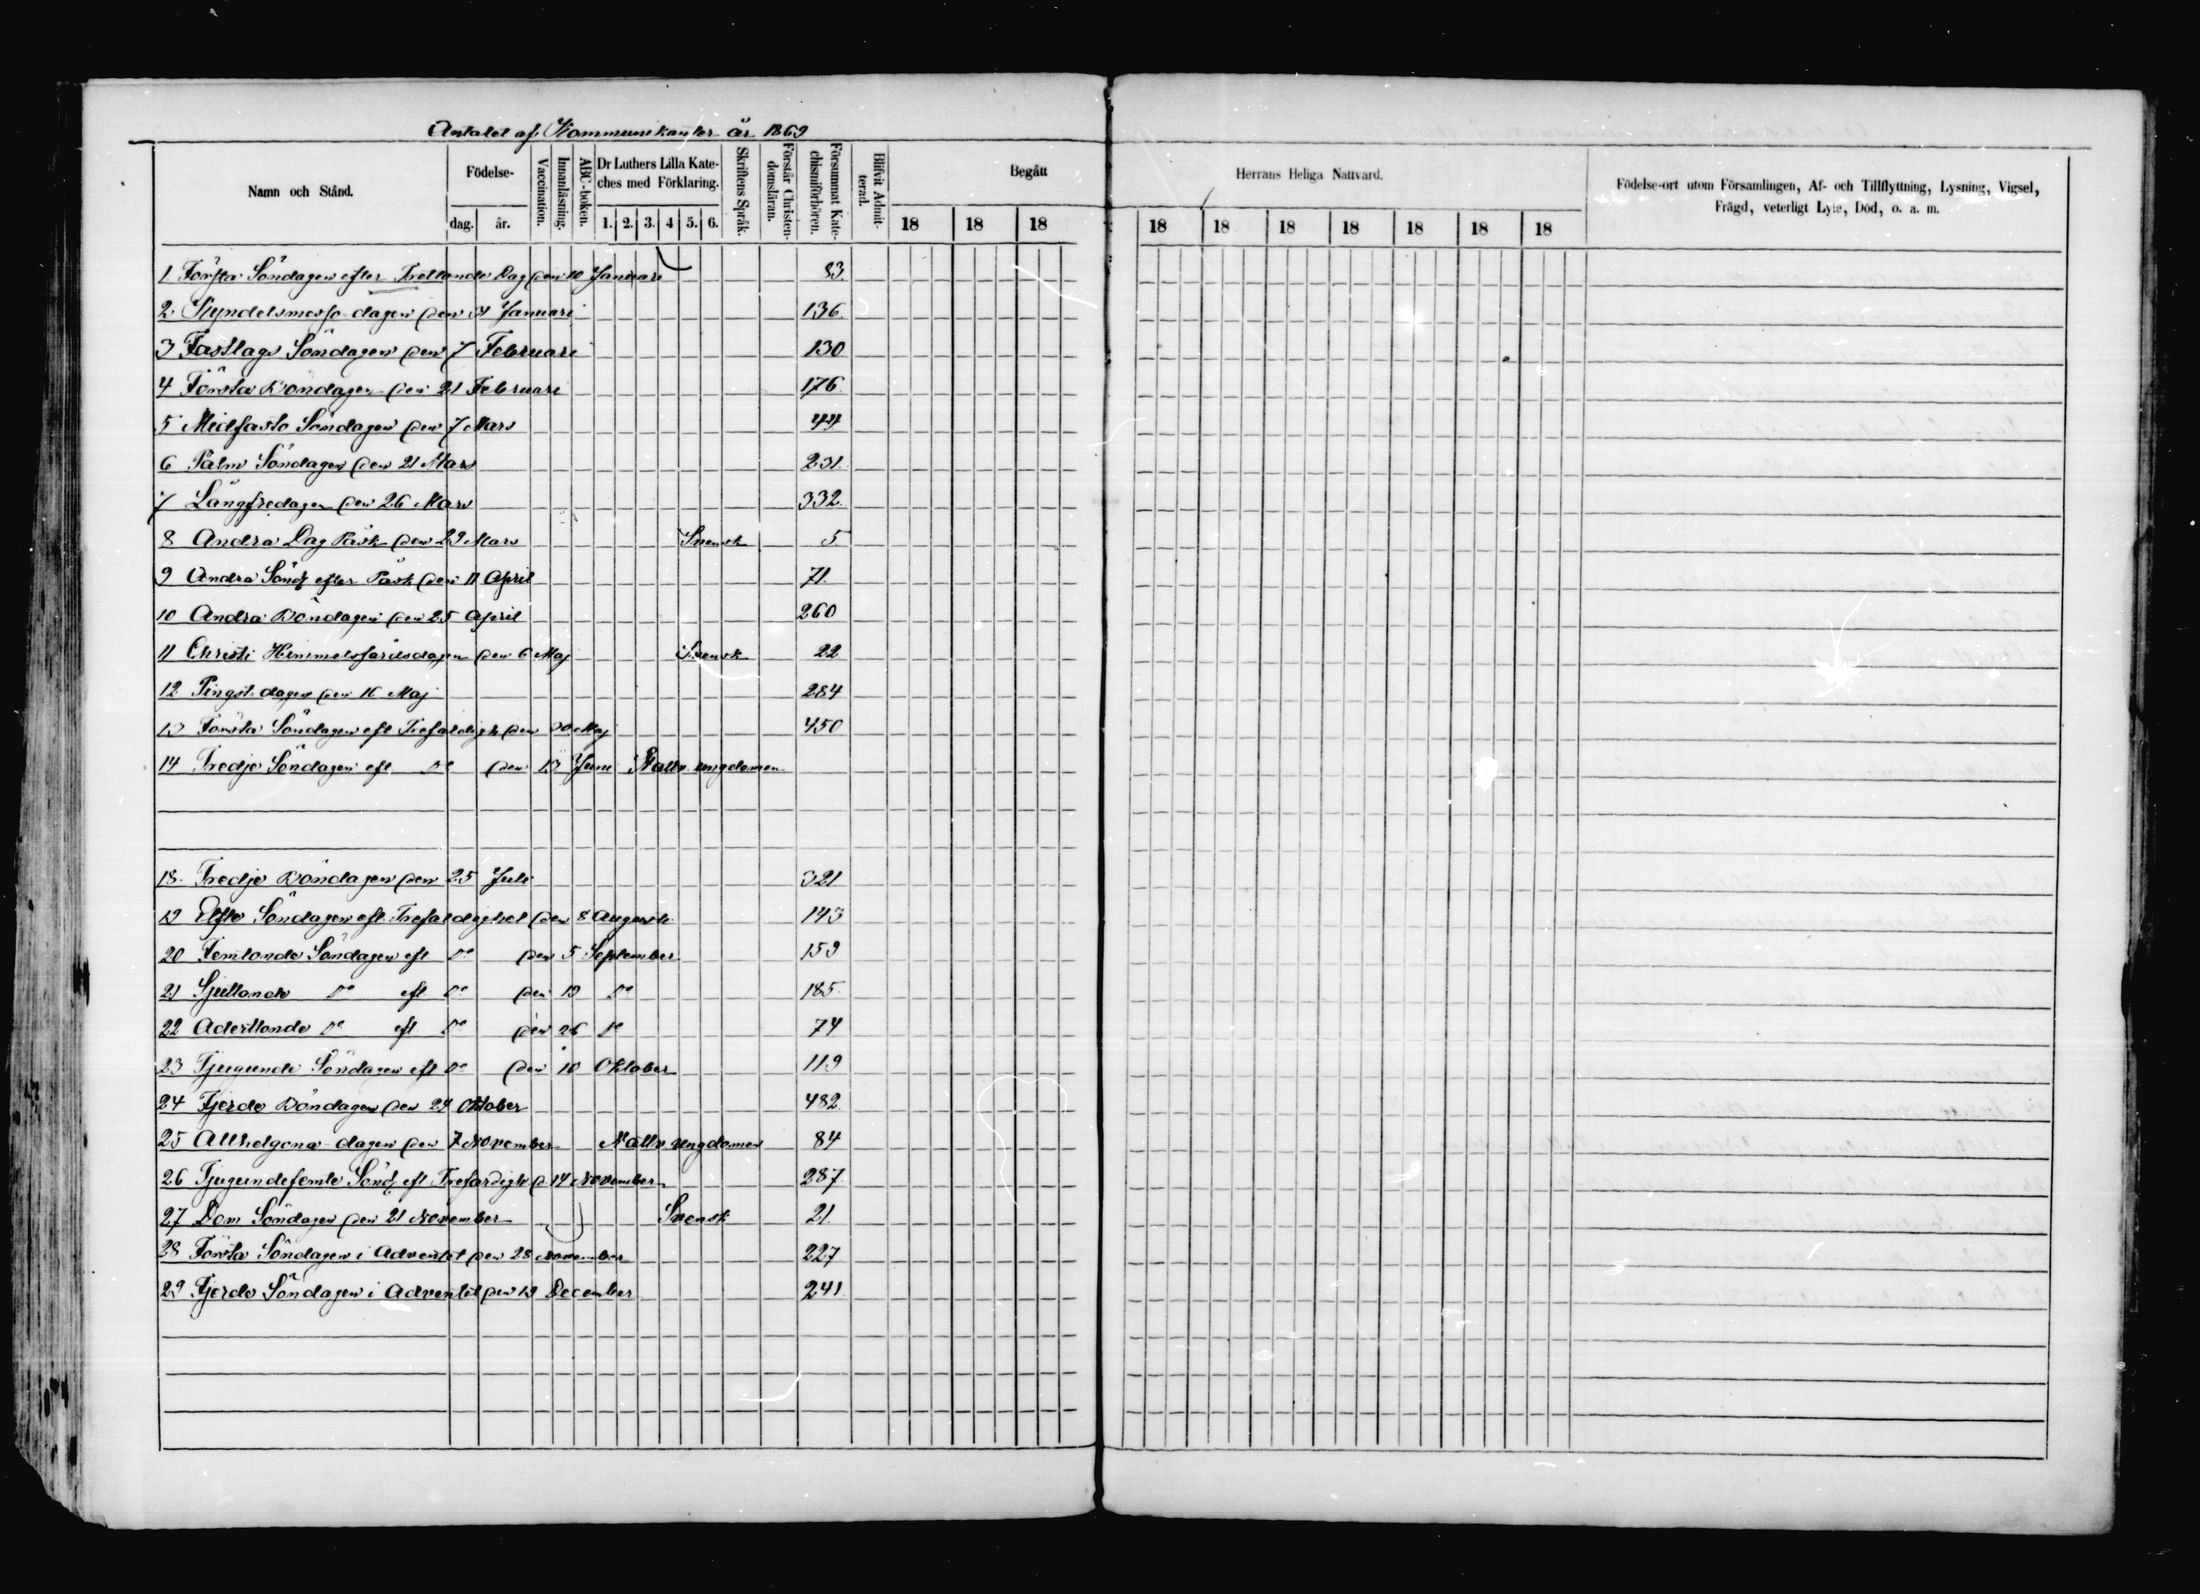 Antalet af Kommunikanter år 1869
Namn och Stånd.
Födelse-
dag. år.
Vaccination.
Innanläsning.
ABC-boken.
Dr Luthers Lilla Kate-
ches med Förklaring.
1. 2. 3. 4 5. 6.
Skriftens Språk.
Förstår Christen-
domsläran.
Försummat Kate-
chismiförhören.
Blifvit Admit-
terad.
Begått
18 18 18
Herrans Heliga Nattvard.
18 18 18 18 18 18 18
Födelse-ort utom Församlingen, Af- och Tillflyttning, Lysning, Vigsel,
Frägd, veterligt Lyte, Död, o. a. m.
1 Första Söndagen efter Trettonde Dag den 10 Januari 83.
2 Kyndelsmesso dagen den 31 Januari 136.
3 Fastlags Söndagen den 7 Februari 130
4 Första Böndagen den 21 Februari 176.
5 Midfasto Söndagen den 7 Mars 44
6 Palm Söndagen den 21 Mars 231.
7 Långfredagen den 26 Mars 332.
8 Andra Dag Påsk den 29 Mars Svensk 5.
9 Andra Sönd efter Påsk den 11 April 71.
10 Andra Böndagen den 25 April 260
11 Christi Himmelsfärdsdagen den 6 Maj Svensk 22
12 Pingstdagen den 16 Maj 284
13 Första Söndagen eft Trefaldigh den 30 Maj 450
14 Tredje Söndagen eft Do den 13 Juni Nattv ungdomen
18. Tredje Böndagen den 25 Juli 321
19 Elfte Söndagen eft Trefaldighet den 8 Augusti 143
20 Femtonde Söndagen eft Do den 5 September 159
21 Sjuttonde Do eft Do den 19 Do 185.
22 Adertonde Do eft Do den 26 Do 74
23 Tjugunde Söndagen eft Do den 10 Oktober 119
24 Fjerde Böndagen den 24 Oktober 482.
25 Allhelgona dagen den 7 November Nattv ungdomen 84
26 Tjugundefemte Sönd eft Trefardigh d 14 November 287.
27 Dom Söndagen den 21 November Svensk 21.
28 Första Söndagen i Adventet den 28 November 227
29 Fjerde Söndagen i Adventet den 19 December 241